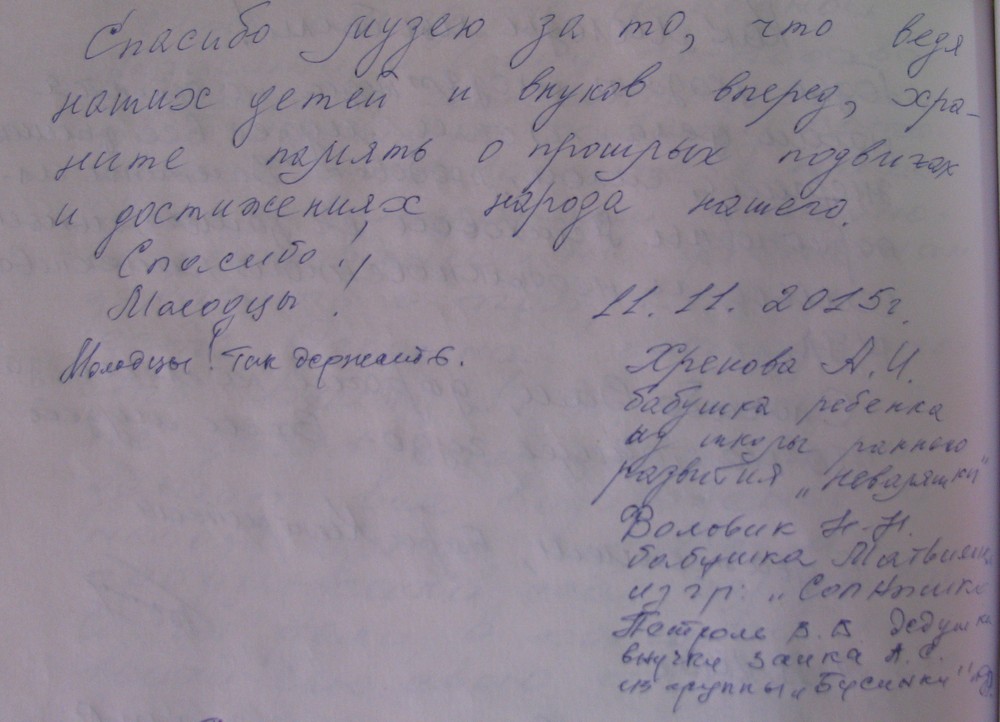 Спасибо музею за то, что ведя
наших детей и внуков вперед, хра-
ните память о прошлых подвигах
и достижениях народа нашего.
Спасибо!
Молодцы! 11.11.2015г.
Молодцы! Так держать.
Хренова А.И.
бабушка ребенка
из школы раннего
развития „Неваляшки"
Воловик Н.Н.
бабушка
из гр. „Солнышко
В.В. дедушка
внучки Заика А.С.
из группы „Бусинки"